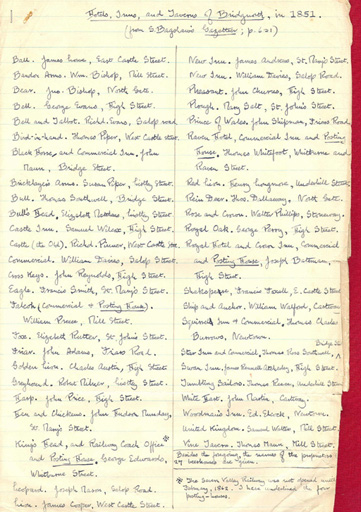 Hotels, Inns, and Taverns of Bridgnorth, in 1851.
(from S. Bagshaw's Gazetteer; p. 621)
Ball. James Crowe, East Castle Street.
Bandon Arms. Wm. Bishop, Mill Street.
Bear. Jno. Bishop, North Gate.
Bell. George Evans, High Street.
Bell and Talbot. Richd. Evans, Salop road
Bird-in-hand. Thomas Piper, West Castle street
Black Horse and Commercial Inn, John
Mann, Bridge Street.
Bricklayer's Arms. Susan Piper, Listly Street.
Bull. Thomas Southwell, Bridge Street.
Bull's Head, Elizabeth Matthews, Listly Street.
Castle Inn. Samuel Wilcox, High Street.
Castle (the Old). Richd. Pulmer, West Castle Street.
Commercial. William Davies, Salop Street.
Cross Keys. John Reynolds, High Street.
Eagle. Francis Smith, St. Mary's Street.
Falcon (Commercial & Posting House).
William Preece, Mill Street.
Fox. Elizabeth Rutter, St. John's Street.
Friar. John Adams, Friars Road.
Golden Lion. Charles Austin, High Street.
Greyhound. Robt. Milner, Listly Street.
Harp. John Price, High Street.
Hen and Chickens. John Munday,
St. Mary's Street.
King's Head, and Railway Coach Office
and Posting House, George Edwards,
Whitburn Street.
Leopard. Joseph Mason, Salop Road.
Lion. James Cooper, West Castle Street.
New Inn. James Andrews, St. Mary's Street.
New Inn. William Davies, Salop Road.
Pheasant. John Churns, High Street.
Plough. Mary Belt, St. John's Street.
Prince of Wales. John Shipman, Friars Road
Raven Hotel, Commercial Inn and Posting
House. Thomas Whitefoot, Whitburn and
Raven Street.
Red Lion. Henry Longmore, Underhill Street
Rein Deer. Thos. Dallaway, North Gate.
Rose and Crown. Walter Phillips, Stoneway.
Royal Oak. George Perry, High Street.
Royal Hotel and Crown Inn, Commercial
and Posting House, Joseph Bateman,
High Street.
Shakespear, Francis Powell, E. Castle Street
Ship and Anchor. William Walford,
Squirrel Inn & Commercial, Thomas Charles
Burrows, Newtown.
Bridge St.
Star Inn and Commercial, Thomas Southwell,
Swan Inn. James Hatterley, High Street.
Tumbling Sailors. Thomas Pearson, Underhill Street
White Hart. John Martin, Cartway.
Woodman's Inn. Ed. Newtown.
United Kingdom. Samuel Mill Street.
Vine Tavern. Thomas Mann, Mill Street.
Besides the foregoing, the names of the proprietors
of 27 beerhouses are given.
The Severn Valley Railway was not opened until
February, 1862. I have underlined the four
posting-houses.